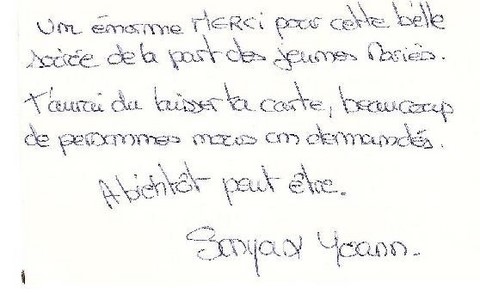 Um énorme MERCi pour cette belle
soirée de la part des jeunes Mariés.
T'aurai du laisser ta carte, beaucoup
de personnes nous on demandés.
A bientôt peut être.
Sonya & Yoann.